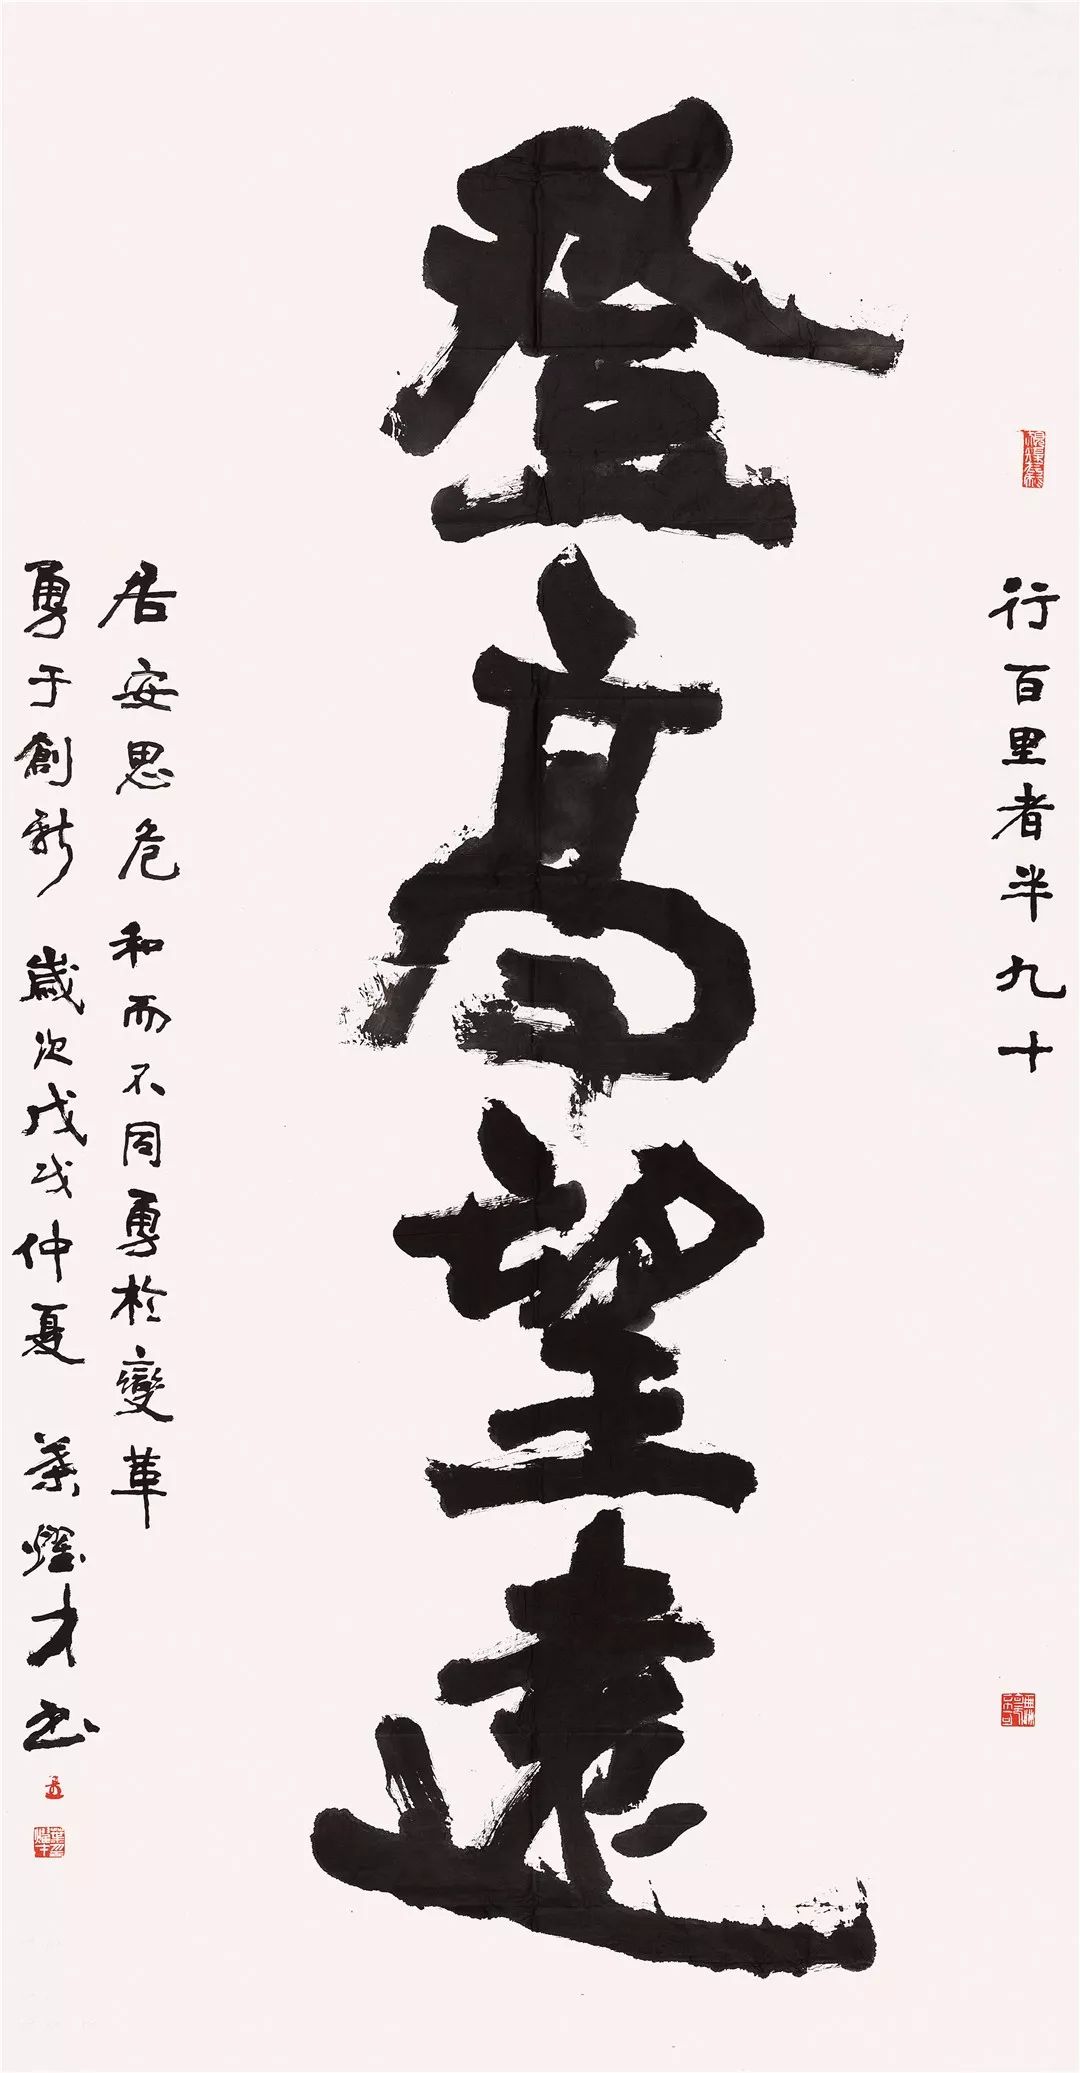 行百里者半九十
登高望遠
居安思危 和而不同勇於變革
勇于創新 歲次戊戌仲夏 葉燿才书